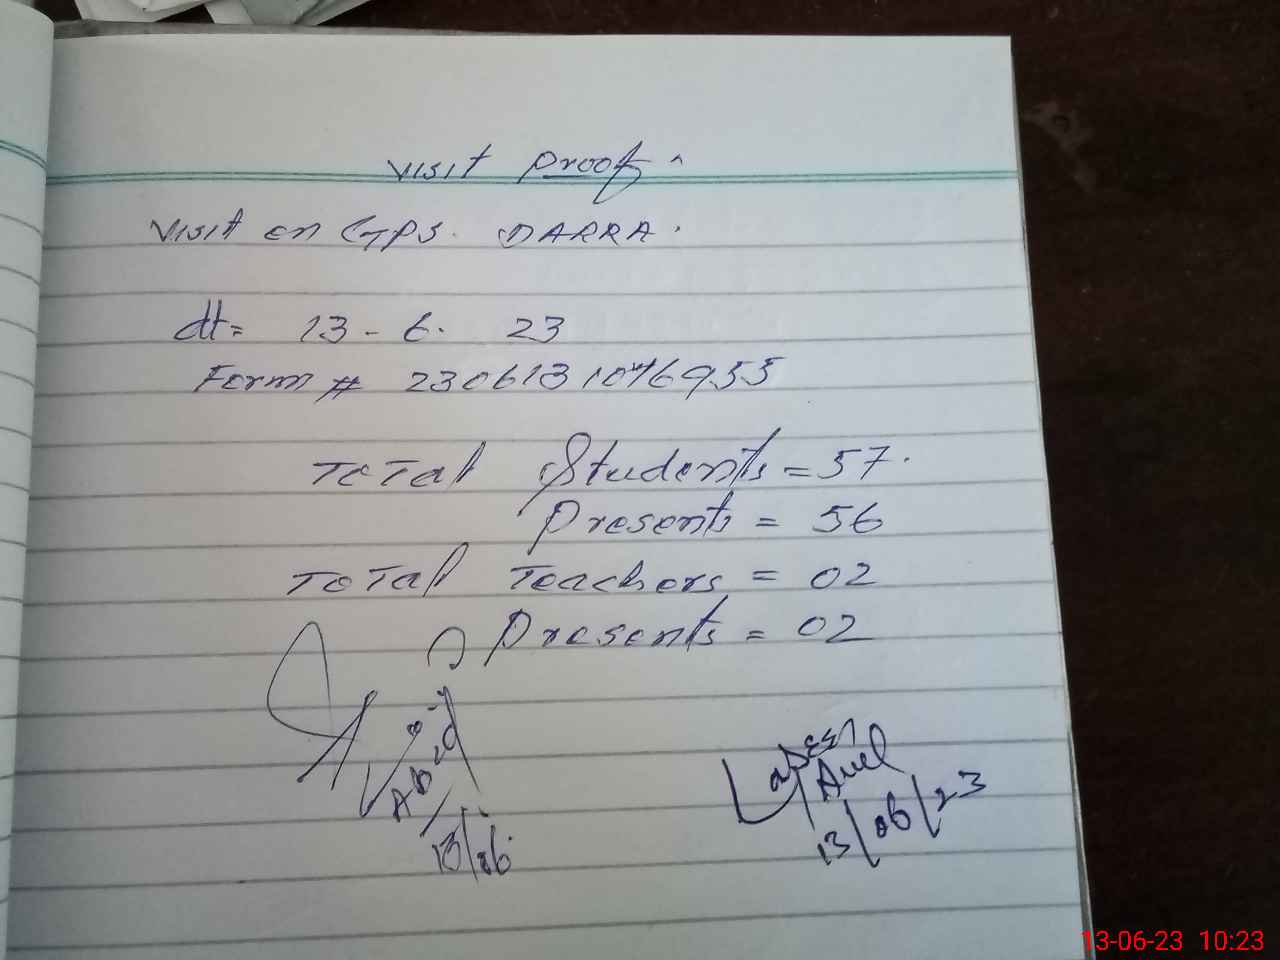 Visit Proof
Visit on GPS. DARRA.
dt= 13 - 6. 23
Form #
Total Students = 57.
Presents = 56
Total Teachers = 02
Presents = 02
13/06
13/06/23
13-06-23 10:23